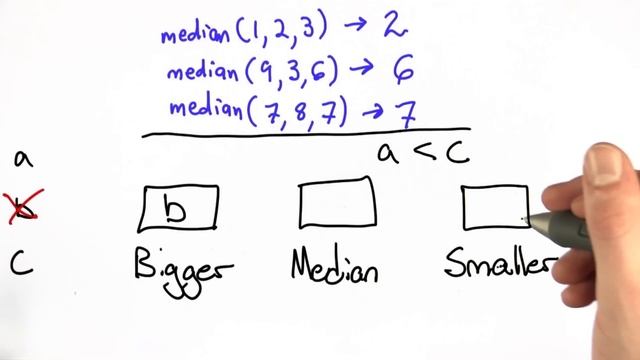 median(1,2,3) → 2
median(9,3,6) → 6
median(7,8,7) → 7
a < c
a
b
c
b
Bigger
Median
Smaller